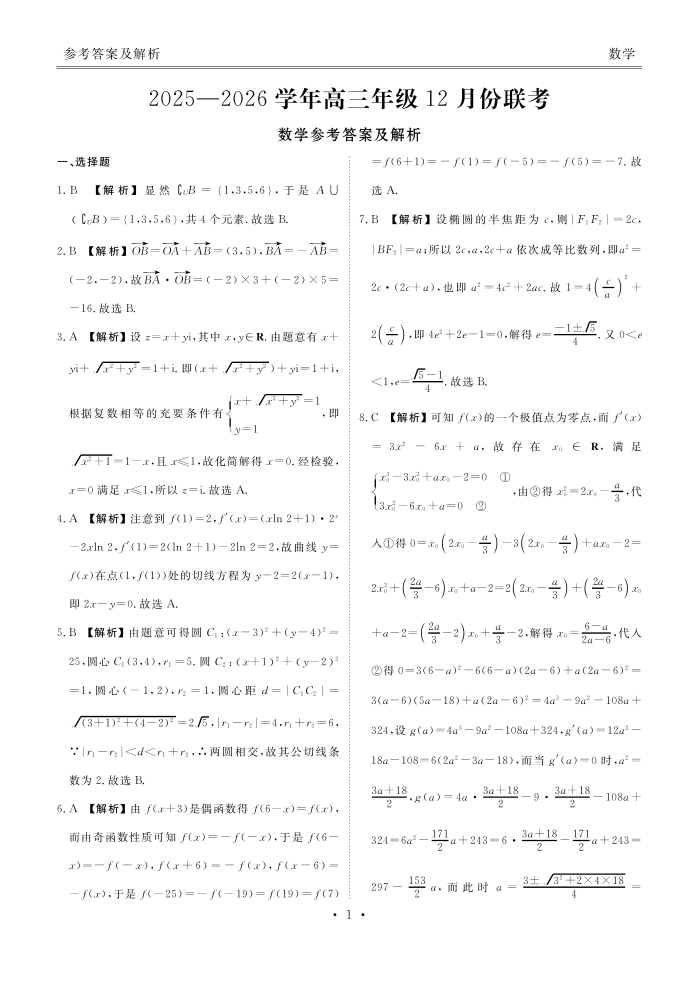 参考答案及解析
数学
2025—2026 学年高三年级 12 月份联考
数学参考答案及解析
一、选择题
1. B 【解析】显然 ∁UB = {1,3,5,6},于是 A∪
(∁UB)={1,3,5,6},共 4 个元素. 故选 B.
2. B 【解析】OB→=OA→+AB→=(3,5),BA→=-AB→=
(-2,-2),故BA→·OB→=(-2)×3+(-2)×5=
-16. 故选 B.
3. A 【解析】设 z=x+yi,其中 x,y∈R. 由题意有 x+
yi+√(x²+y²)=1+i. 即(x+√(x²+y²))+yi=1+i,
根据复数相等的充要条件有{x+√(x²+y²)=1 y=1,即
√(x²+1)=1-x,且 x≤1,故化简解得 x=0. 经检验,
x=0 满足 x≤1,所以 z=i. 故选 A.
4. A 【解析】注意到 f(1)=2,f′(x)=(xln 2+1)·2ˣ
-2xln 2,f′(1)=2(ln 2+1)-2ln 2=2,故曲线 y=
f(x)在点(1,f(1))处的切线方程为 y-2=2(x-1),
即 2x-y=0. 故选 A.
5. B 【解析】由题意可得圆 C₁:(x-3)²+(y-4)²=
25,圆心 C₁(3,4),r₁=5. 圆 C₂:(x+1)²+(y-2)²
=1,圆心(-1,2),r₂=1,圆心距 d=|C₁C₂|=
√((3+1)²+(4-2)²)=2√5,|r₁-r₂|=4,r₁+r₂=6,
∵|r₁-r₂|<d<r₁+r₂,∴两圆相交,故其公切线条
数为 2. 故选 B.
6. A 【解析】由 f(x+3)是偶函数得 f(6-x)=f(x),
而由奇函数性质可知 f(x)=-f(-x),于是 f(6-
x)=-f(-x),f(x+6)=-f(x),f(x-6)=
-f(x),于是 f(-25)=-f(-19)=f(19)=f(7)
=f(6+1)=-f(1)=f(-5)=-f(5)=-7. 故
选 A.
7. B 【解析】设椭圆的半焦距为 c,则|F₁F₂|=2c,
|BF₂|=a;所以 2c,a,2c+a 依次成等比数列,即a²=
2c·(2c+a),也即 a²=4c²+2ac. 故 1=4(c/a)²+
2(c/a),即 4e²+2e-1=0,解得 e=(-1±√5)/4. 又 0<e
<1,e=(√5-1)/4. 故选 B.
8. C 【解析】可知 f(x)的一个极值点为零点,而 f′(x)
= 3x² - 6x + a,故存在 x₀ ∈ R,满足
{x₀³-3x₀²+ax₀-2=0 ① 3x₀²-6x₀+a=0 ②,由②得 x₀²=2x₀-a/3,代
入①得 0=x₀(2x₀-a/3)-3(2x₀-a/3)+ax₀-2=
2x₀²+(2a/3-6)x₀+a-2=2(2x₀-a/3)+(2a/3-6)x₀
+a-2=(2a/3-2)x₀+a/3-2,解得 x₀=(6-a)/(2a-6),代入
②得 0=3(6-a)²-6(6-a)(2a-6)+a(2a-6)²=
3(a-6)(5a-18)+a(2a-6)²=4a³-9a²-108a+
324,设 g(a)=4a³-9a²-108a+324,g′(a)=12a²-
18a-108=6(2a²-3a-18),而当 g′(a)=0 时,a²=
(3a+18)/2,g(a)=4a·(3a+18)/2-9·(3a+18)/2-108a+
324=6a²-171/2a+243=6·(3a+18)/2-171/2a+243=
297-153/2a,而此时 a=(3±√(3²+2×4×18))/4=
· 1 ·